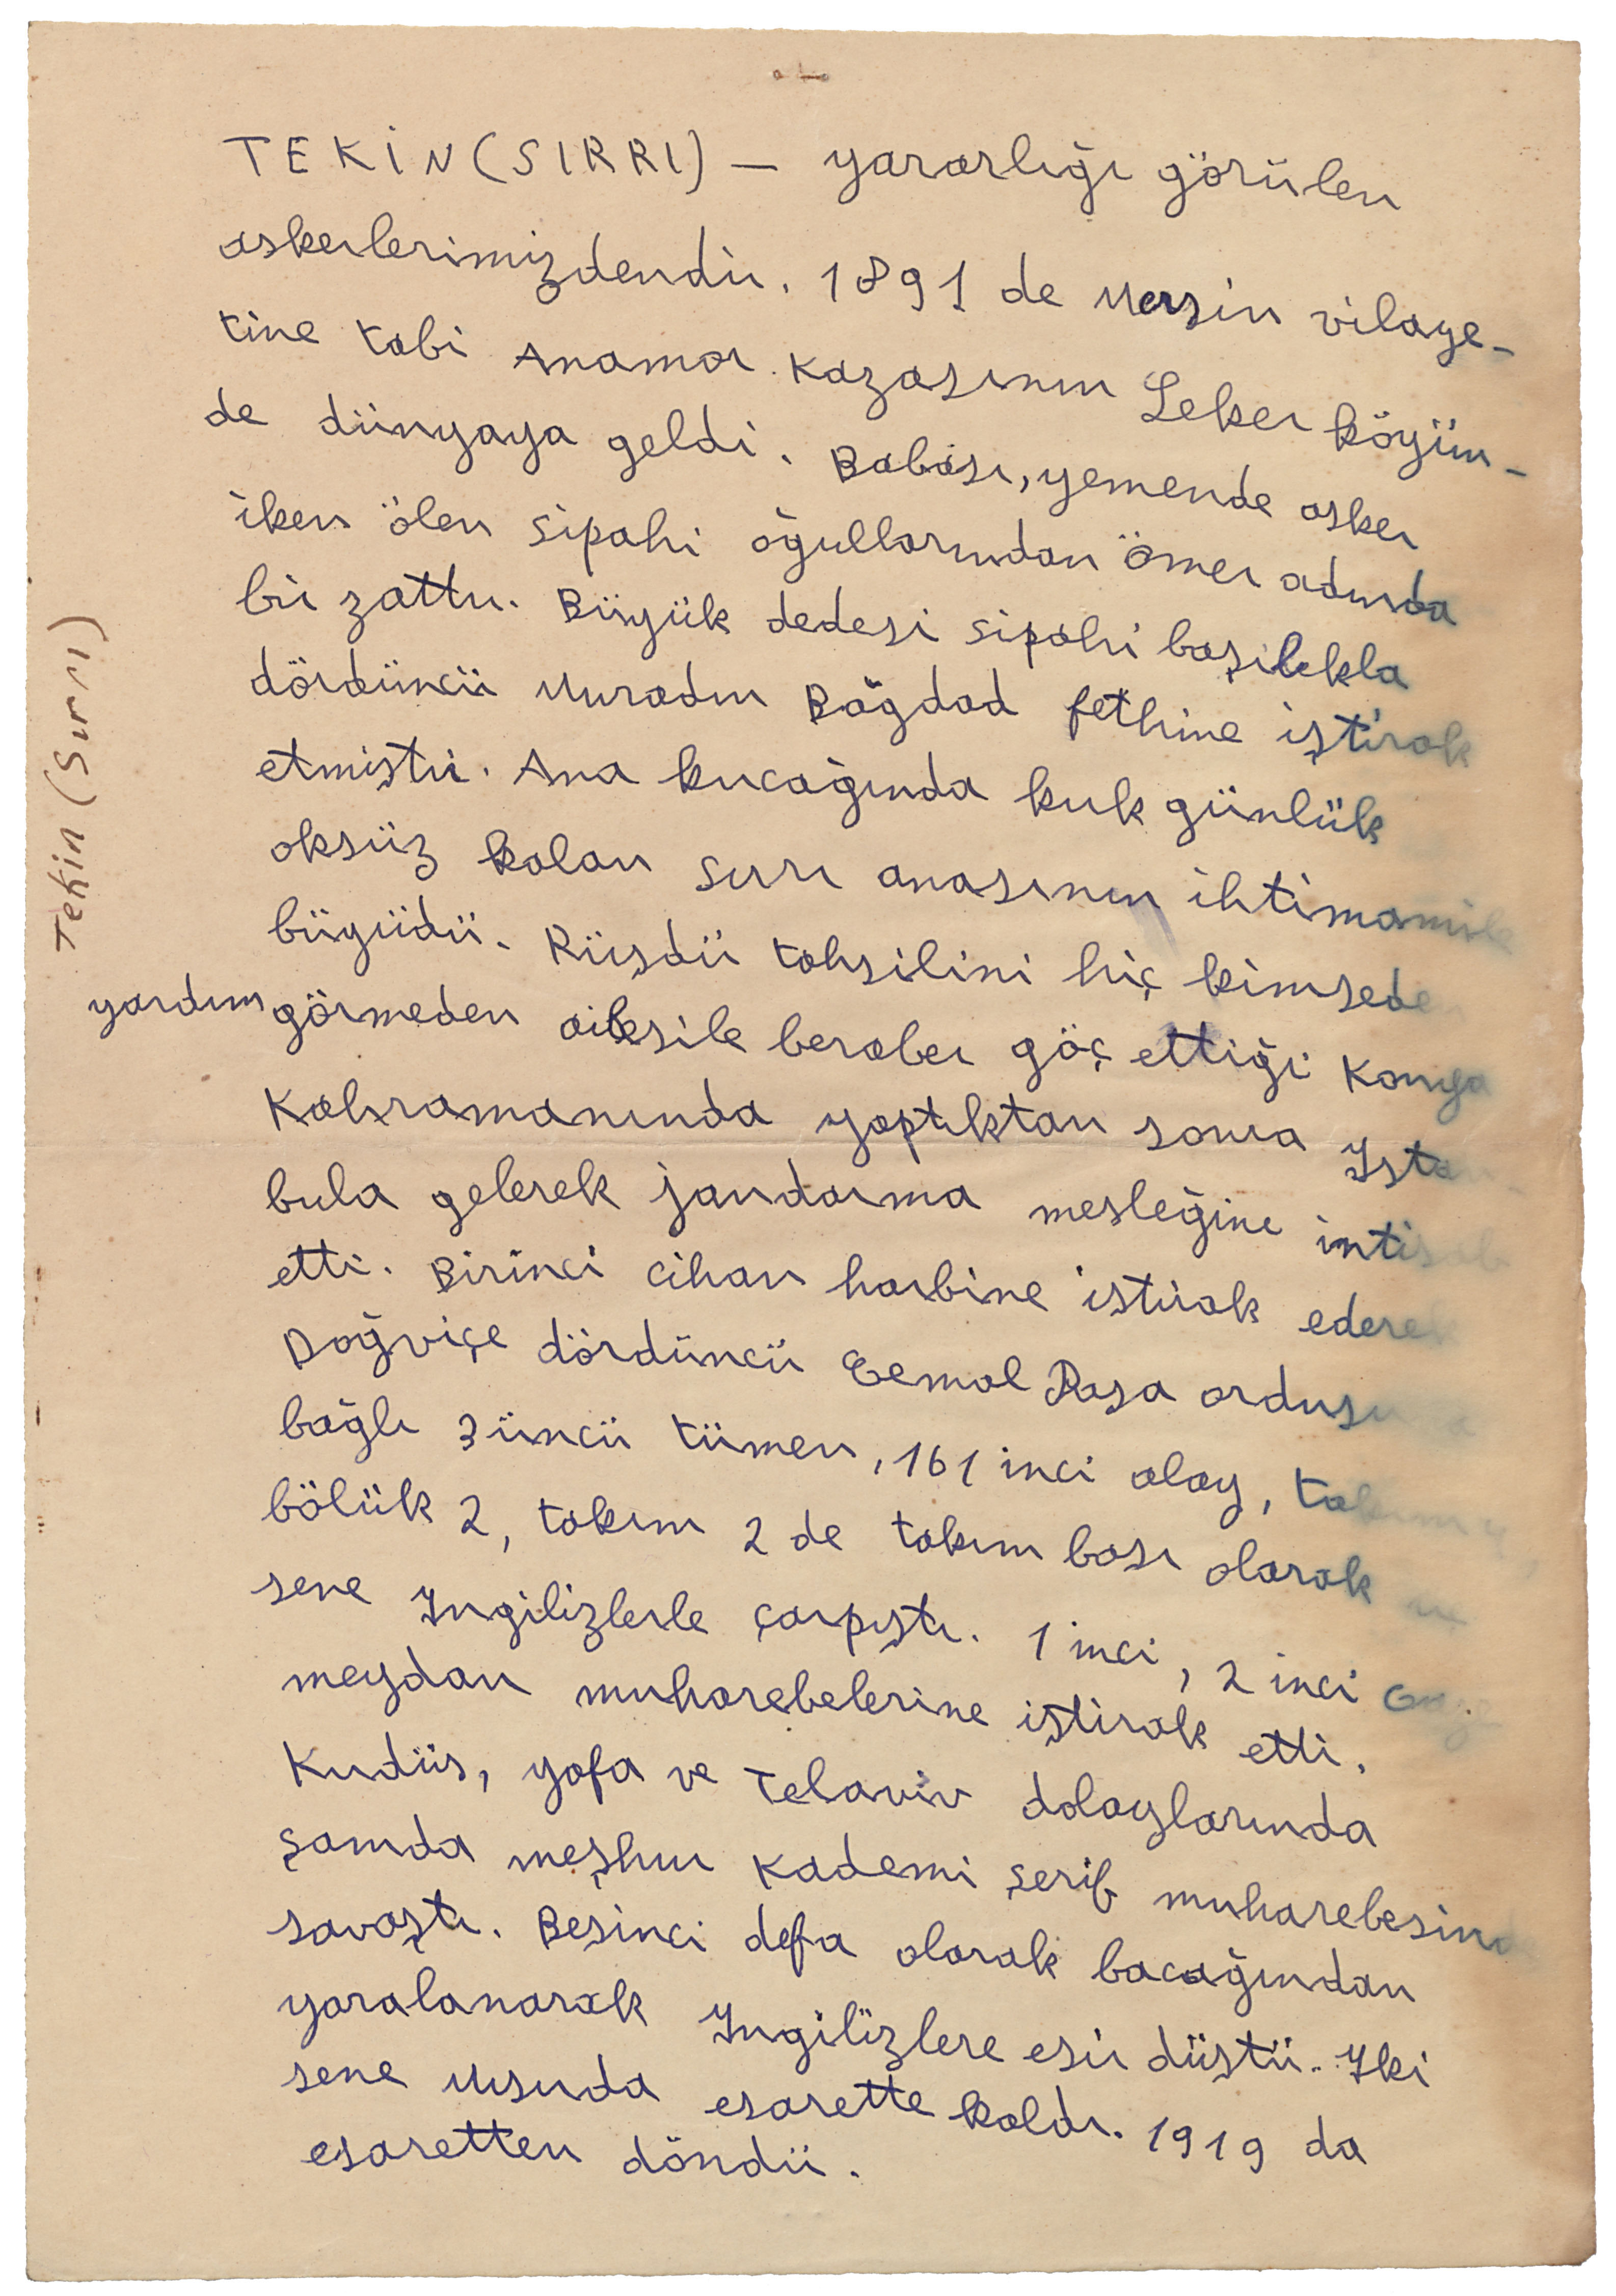 TEKİN (SIRRI) — yararlığı görülen
askerlerimizdendir. 1891 de Mersin vilaye-
tine tabi Anamor kazasının Leker köyün-
de dünyaya geldi. Babası, yemende asker
iken ölen sipahi oğullarından Ömer adında
bir zattır. Büyük dedesi sipahi başılıkla
dördüncü Muradın Bağdad fethine iştirak
etmiştir. Ana kucağında kırk günlük
oksüz kalan Sırrı anasının ihtimamile
büyüdü. Rüşdü tahsilini hiç kimseden
yardım görmeden ailesile beraber göç ettiği Konya
Kahramanında yaptıktan sonra Istan-
bula gelerek jandarma mesleğine intisab
etti. Birinci cihan harbine iştirak ederek
Doğviçe dördüncü Cemal Paşa ordusuna
bağlı 3 üncü tümen, 161 inci alay,
bölük 2, takım 2 de takım başı olarak
sene Ingilizlerle çarpıştı. 1 inci, 2 inci
meydan muharebelerine iştirak etti.
Kudüs, yafa ve Telaviv dolaylarında
Şamda meşhur Kademi Şerif muharebesinde
savaştı. Beşinci defa olarak bacağından
yaralanarak Ingilizlere esir düştü. Iki
sene Mısırda esarette kaldı. 1919 da
esaretten döndü.
Tekin (Sırrı)